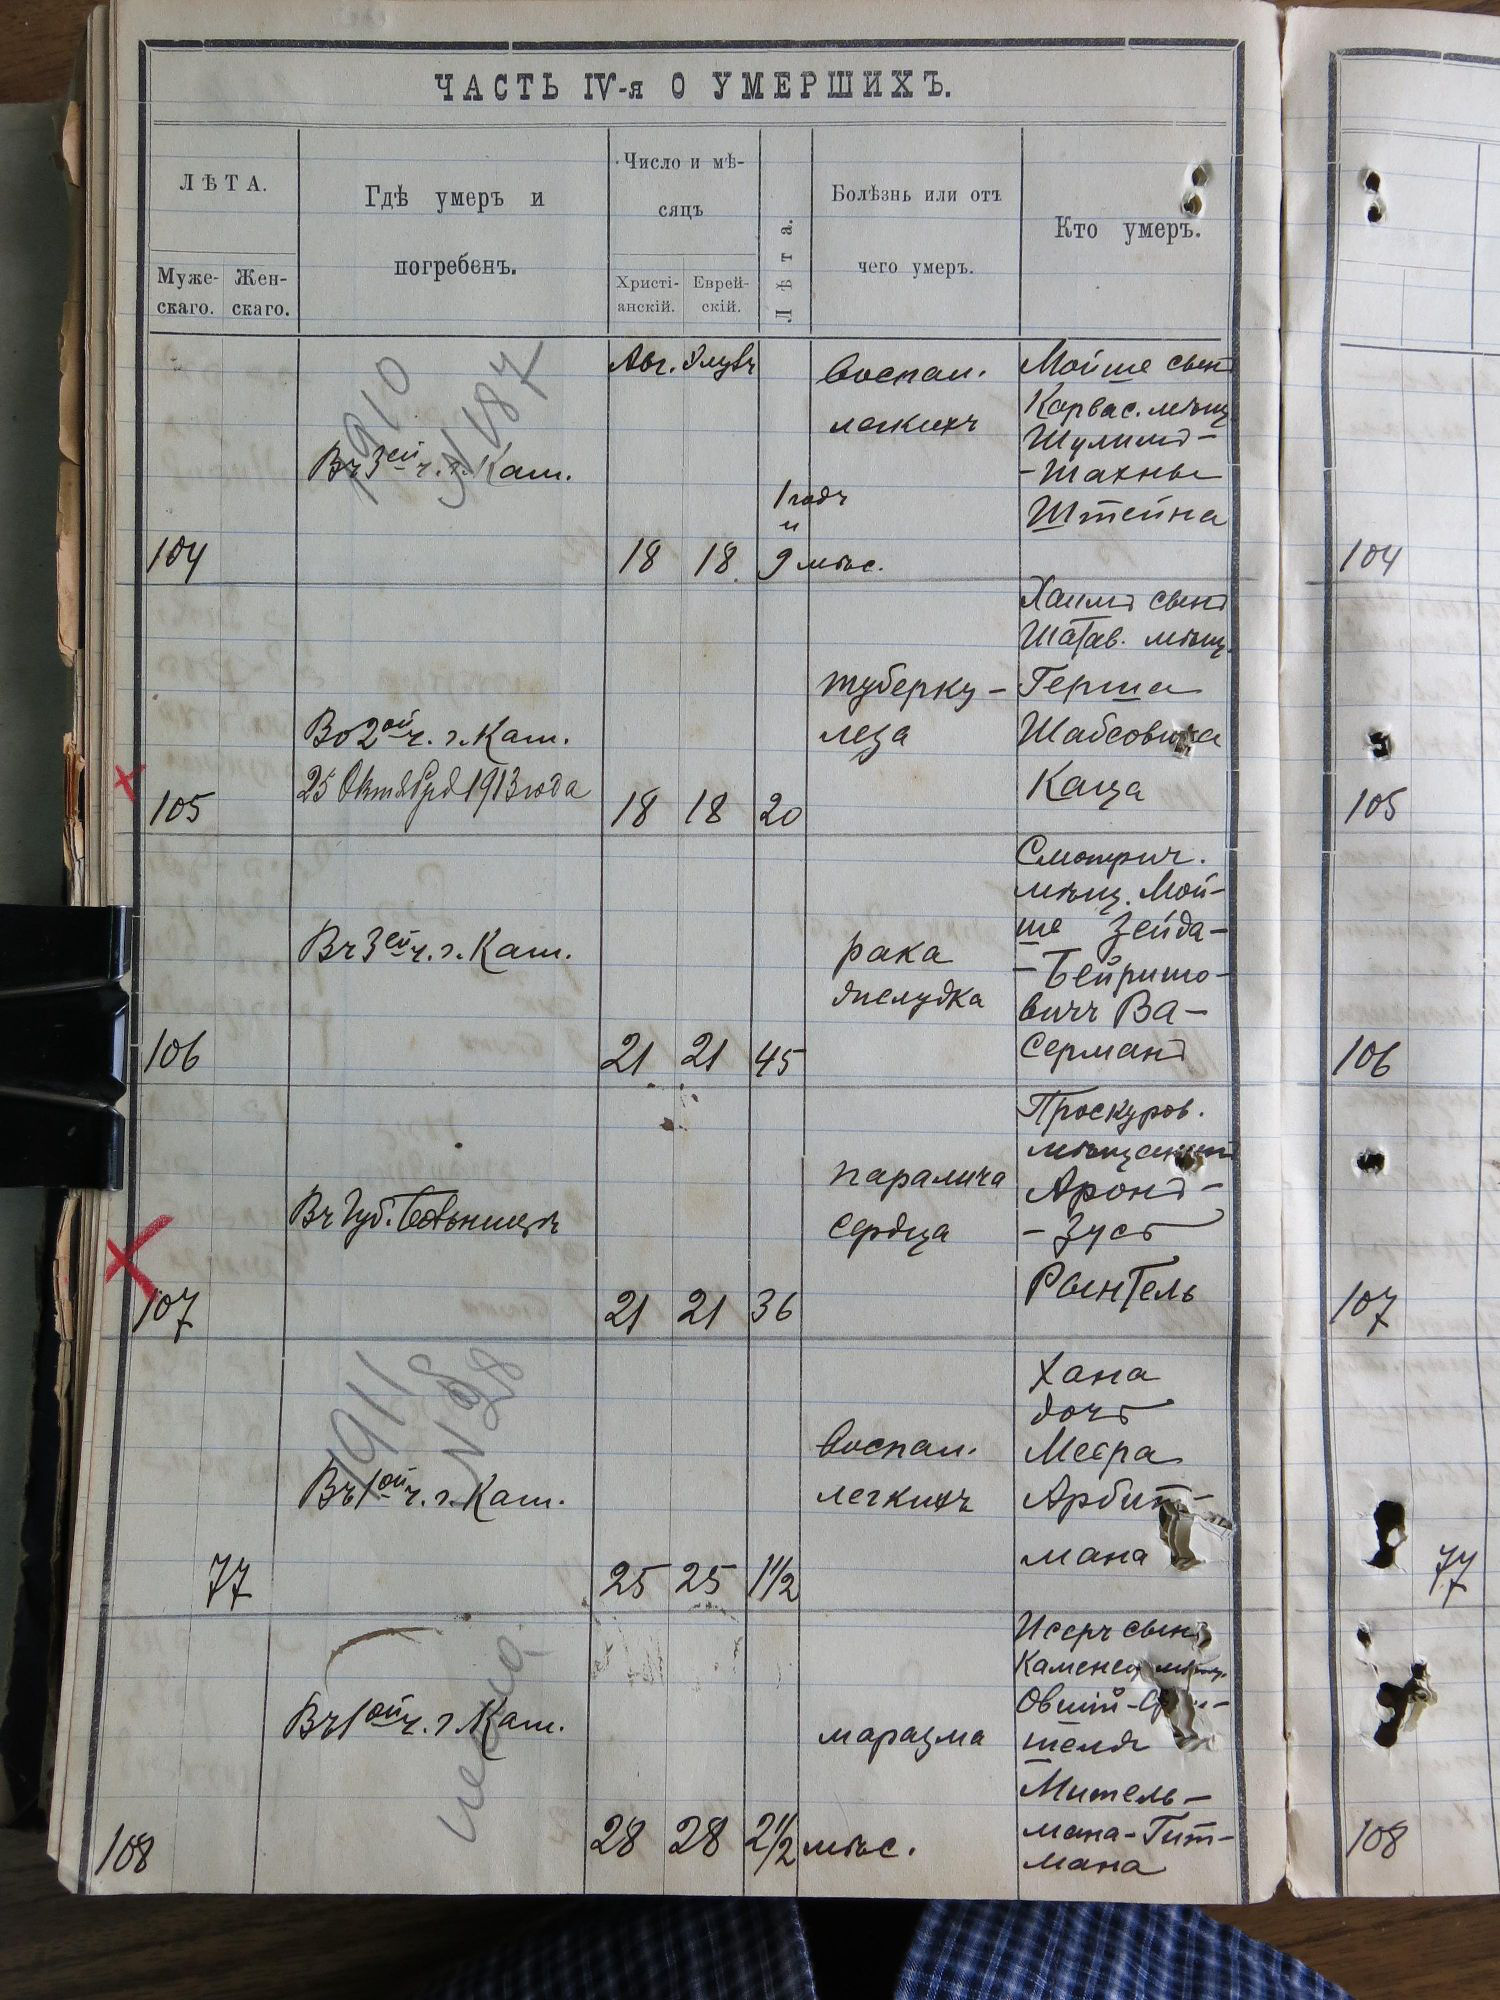 ЧАСТЬ IV-я О УМЕРШИХЪ.
ЛѢТА.
Муже-
скаго.
Жен-
скаго.
Гдѣ умеръ и
погребенъ.
Число и мѣ-
сяцъ
Христі-
анскій.
Еврей-
скій.
Лѣта.
Болѣзнь или отъ
чего умеръ.
Кто умеръ.
1910
N 187
Въ 3ей ч. г. Кам.
Авг. Элулъ
104
18 18
1 годъ
и
9 мѣс.
воспал.
легкихъ
Мойше сынъ
Карвас. мѣщ.
Шулима-
-Шахны
Штейна
104
Во 2ой ч. г. Кам.
25 Октября 1913 года
105
18 18 20
туберку-
леза
Хаимъ сынъ
Шатав. мѣщ.
Герша
Шабсовича
Каца
105
Въ 3ей ч. г. Кам.
106
21 21 45
рака
желудка
Смотрич.
мѣщ. Мой-
ше Зейда-
-Бейришо-
вичъ Ва-
серманъ
106
Въ Губ. Больницѣ
107
21 21 36
паралича
сердца
Проскуров.
мѣщанинъ
Аронъ-
-Зусь
107
1911
Въ 1ой ч. г. Кам.
77
25 25 1 1/2
воспал.
легкихъ
Хана
дочь
Меера
Арбит-
мана
77
Въ 1ой ч. г. Кам.
108
28 28 2 1/2 мѣс.
маразма
Исеръ сынъ
Каменец. мѣщ.
шеля
Митель-
мана-Гит-
мана
108